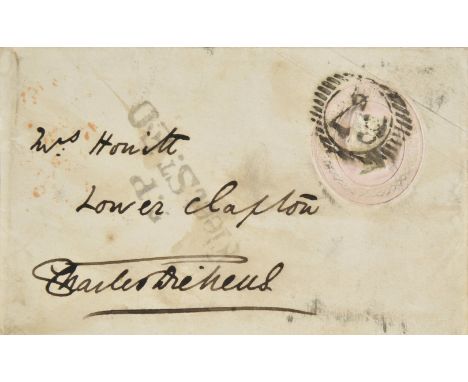 Mrs Howitt
Lower Clapton
Charles Dickens